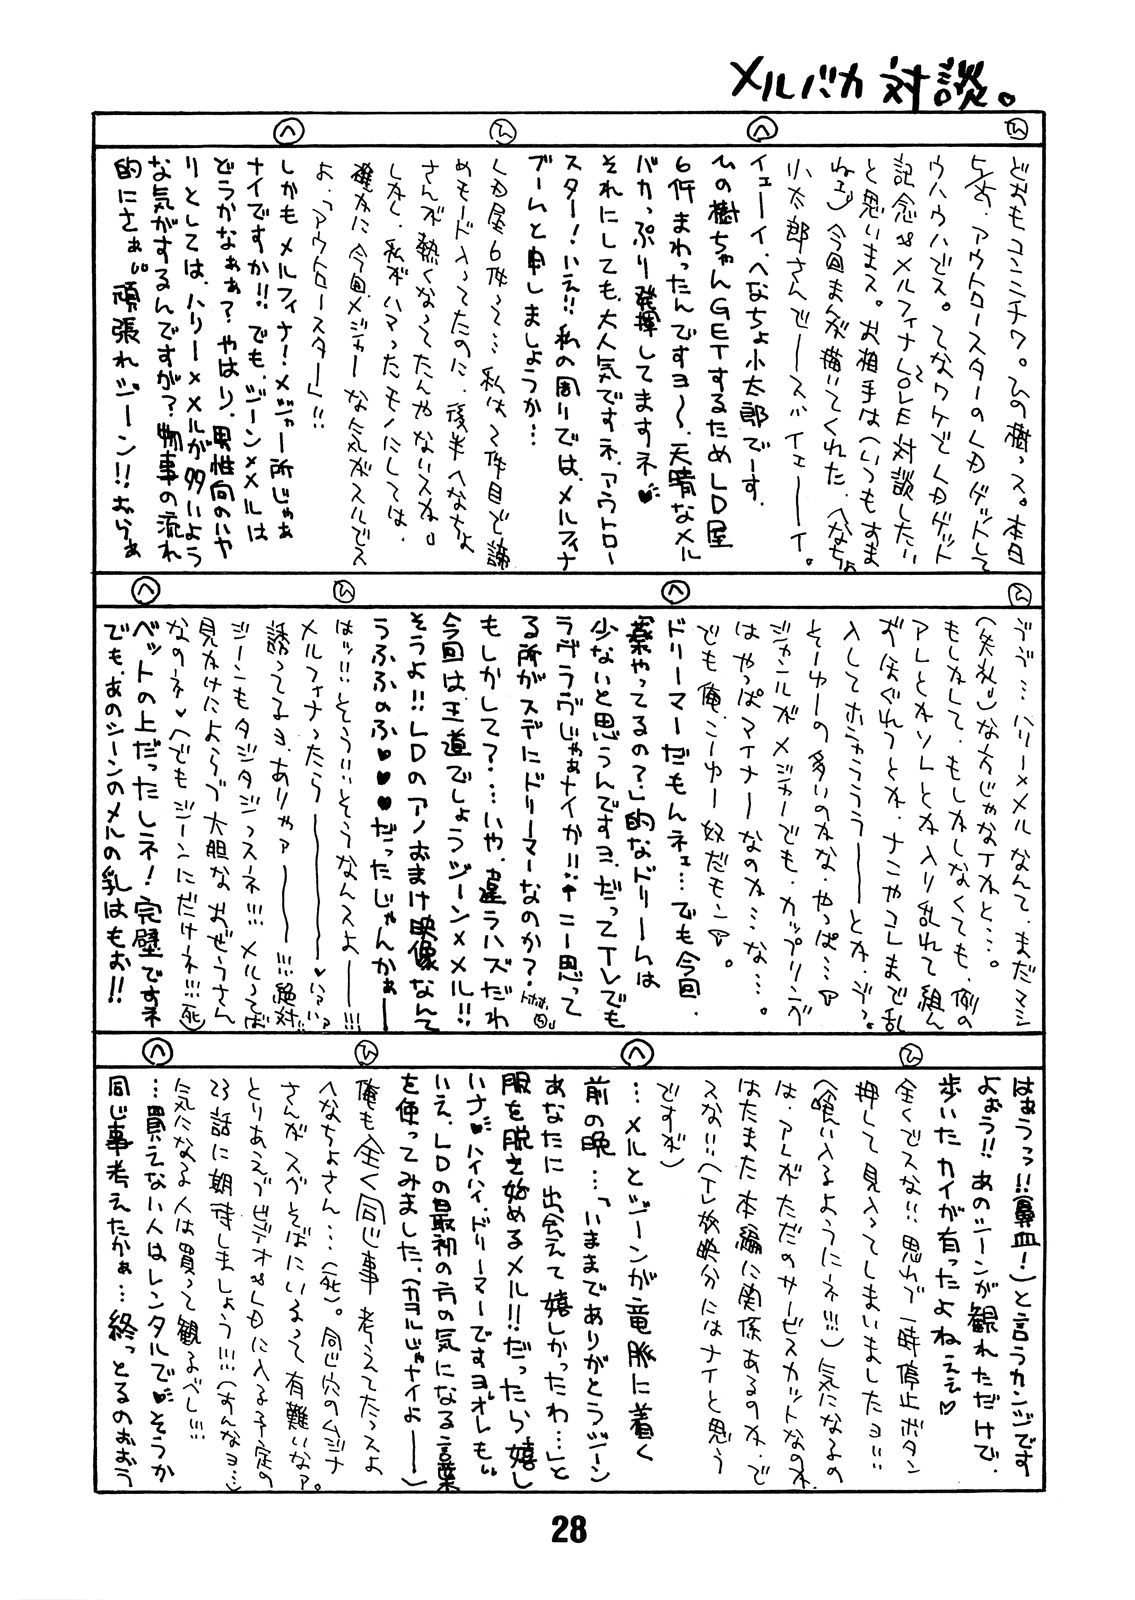 メルバカ対談。
ひ
どおもコンニチワ。ひの樹っス。本日
5/25、アウトロースターのLDゲットして
ウハウハでス。てなワケでLDゲット
記念♂メルフィナLOVE対談したい
と思いまス。お相手は(いつもすま
ねェ)今回まんが描いてくれた、へなちょ
小太郎さんでーースッイェーーイ。
へ
イェーイ、へなちょ小太郎でーす。
ひの樹ちゃんGETするためLD屋
6件まわったんですヨ〜、天晴なメル
バカっぷり発揮してますネ♥
それにしても、大人気ですネ、アウトロー
スター!いえ!!私の周りでは、メルフィナ
ブームと申しましょうか…
ひ
LD屋6件〜て…私は2件目で諦
めモード入ってたのに、後半へなちょ
さんが熱くなってたんやないスかね。
しかし、私がハマったモノにしては、
確かに今回メジャーな気がスルでス
よ、「アウトロースター」!!
へ
しかもメルフィナ!メジャー所じゃぁ
ナイですか!!でも、ジーン×メルは
どうかなぁぁ?やはり、男性向のハヤ
リとしては、ハリー×メルが多いよう
な気がするんですが?物事の流れ
的にさぁ!!頑張れジーン!!おらぁ
ひ
ううう…ハリー×メルなんて、まだマシ
(失礼)な方じゃなイかと…。
もしかして、もしかしなくても、例の
アレとかソレとか入り乱れて組ん
ずほぐれつとか、ナニやコレまで乱
入してホニャラララーーとか、ぞっ。
そーゆーの多いのかな、やっぱ…
ジャンルがメジャーでも、カップリング
はやっぱマイナーなのか…な…。
でも俺、こーゆー奴だモン。
へ
ドリーマーだもんネェ…でも今回、
「薬やってるの?」的なドリームは
少ないと思うんですヨ、だってTVでも
ラヴラヴじゃぁナイか!!←こー思って
る所がスデにドリーマーなのか?
もしかして?…いや、違うハズだわ
今回は、王道でしょうジーン×メル!!
そうよ!!LDのアノおまけ映像なんて
うふふのふ♥♥♥だったじゃんかぁー
ひ
はッ!!そうっ!!そうなんスよーー!!!
メルフィナったらーーーー♥いっぺ!?
誘ってるヨ、ありゃァーーー!!!絶対!!
ジーンもタジタジっスネ!!!メルってば
見かけによらず大胆なおぜうさん
なのネ♥(でもジーンにだけネ!!!死)
へ
ベットの上だったしネ!完璧ですネ
でも、あのシーンのメルの乳はもお!!
はぁうっっ!!(鼻血!)と言うカンジです
よぉう!!あのシーンが観れただけで、
歩いたカイが有ったよねぇぇ♡
ひ
全くでスな!!思わず一時停止ボタン
押して見入ってしまいましたヨ!!
(喰い入るようにネ!!!)気になるの
は、アレがただのサービスカットなのか、
はたまた本編に関係あるのか、で
スな!!(TV放映分にはナイと思う
ですが)
へ
…メルとジーンが竜脈に着く
前の晩…「いままでありがとうジーン
あなたに出会えて嬉しかったわ…」と
服を脱ぎ始めるメル!!だったら嬉し
いナ♥ハイハイ、ドリーマーですヨ、オレも!!
いえ、LDの最初の方の気になる言葉
を使ってみました、(カヨルじゃナイよーー)
ひ
俺も全く同じ事考えてたっスよ
へなちょさん…(死)。同じ穴のムジナ
さんがスグそばにいるって有難いなァ。
とりあえずビデオ♂LDに入る予定の
23話に期待しましょう!!!(すんなヨ…)
気になる人は買って観るべし!!!
へ
…買えない人はレンタルで♥そうか
同じ事考えたかぁ…終っとるのおおう
28